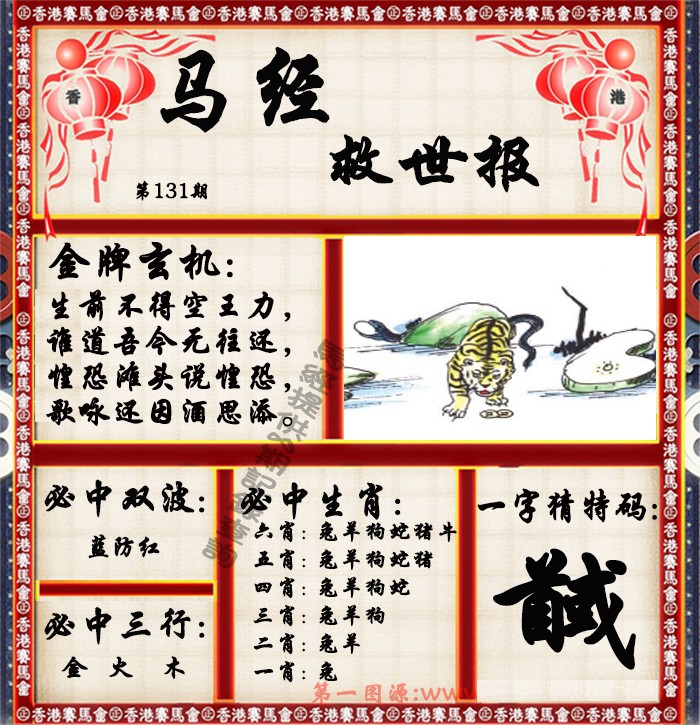 香港賽馬會
香 港
马经
救世报
第131期
金牌玄机:
生前不得空王力,
谁道吾今无往还,
惶恐滩头说惶恐,
歌咏还因酒思添。
必中双波:
蓝防红
必中三行:
金 火 木
必中生肖:
六肖: 兔羊狗蛇猪牛
五肖: 兔羊狗蛇猪
四肖: 兔羊狗蛇
三肖: 兔羊狗
二肖: 兔羊
一肖: 兔
一字猜特码:
馘
第一图源:www